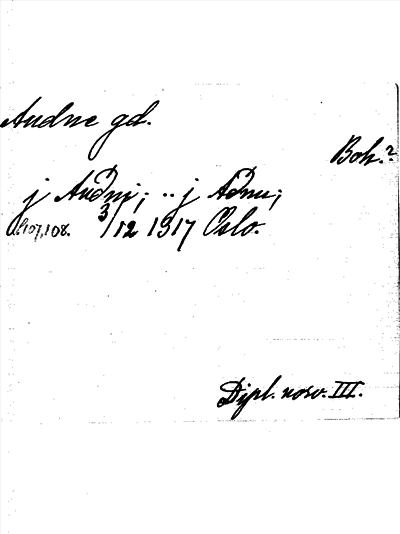 Audne gd.
Boh.?
j Auðni; .. j Aðnu;
107,108. 3/12 1917 Oslo.
Dipl. norv. III.